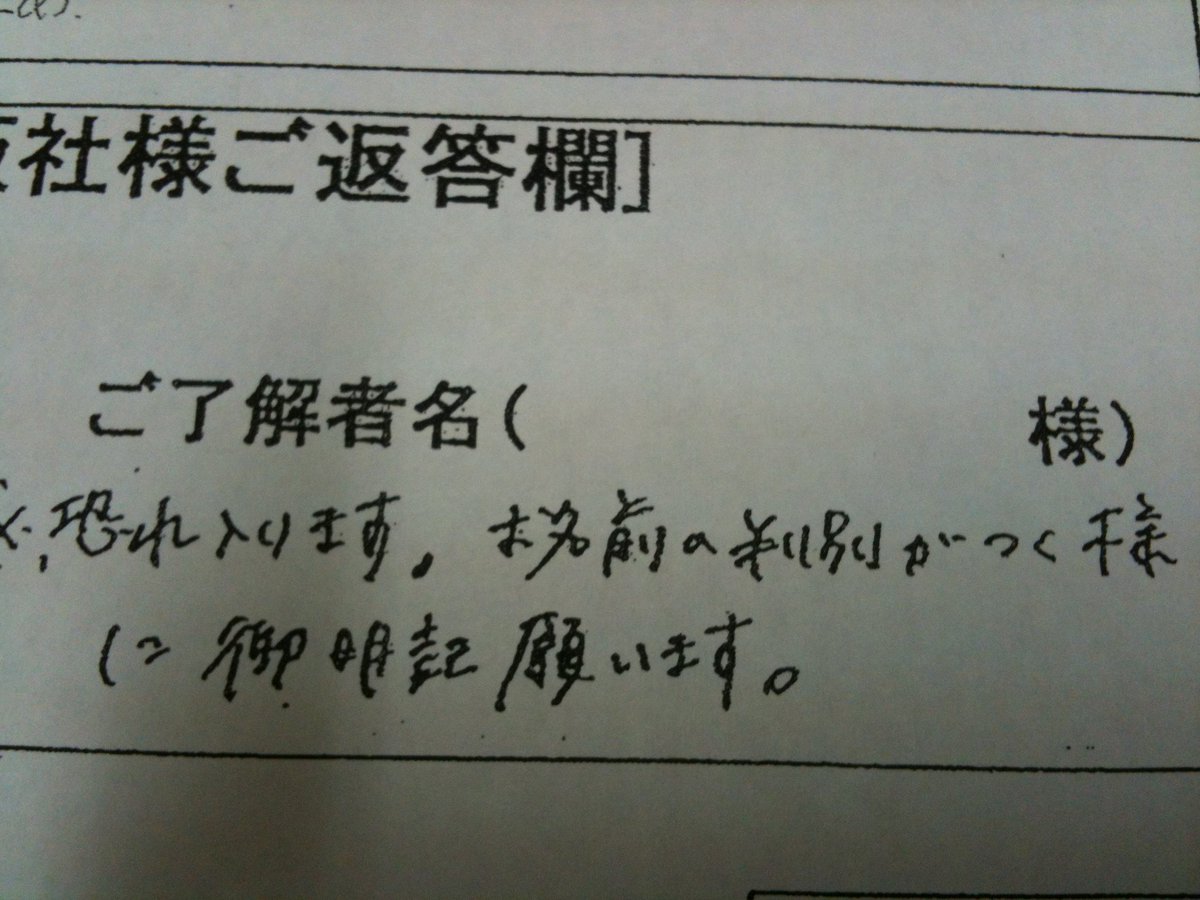 社様ご返答欄]
ご了解者名( 様)
※恐れ入ります。お名前の判別がつく様
に御明記願います。